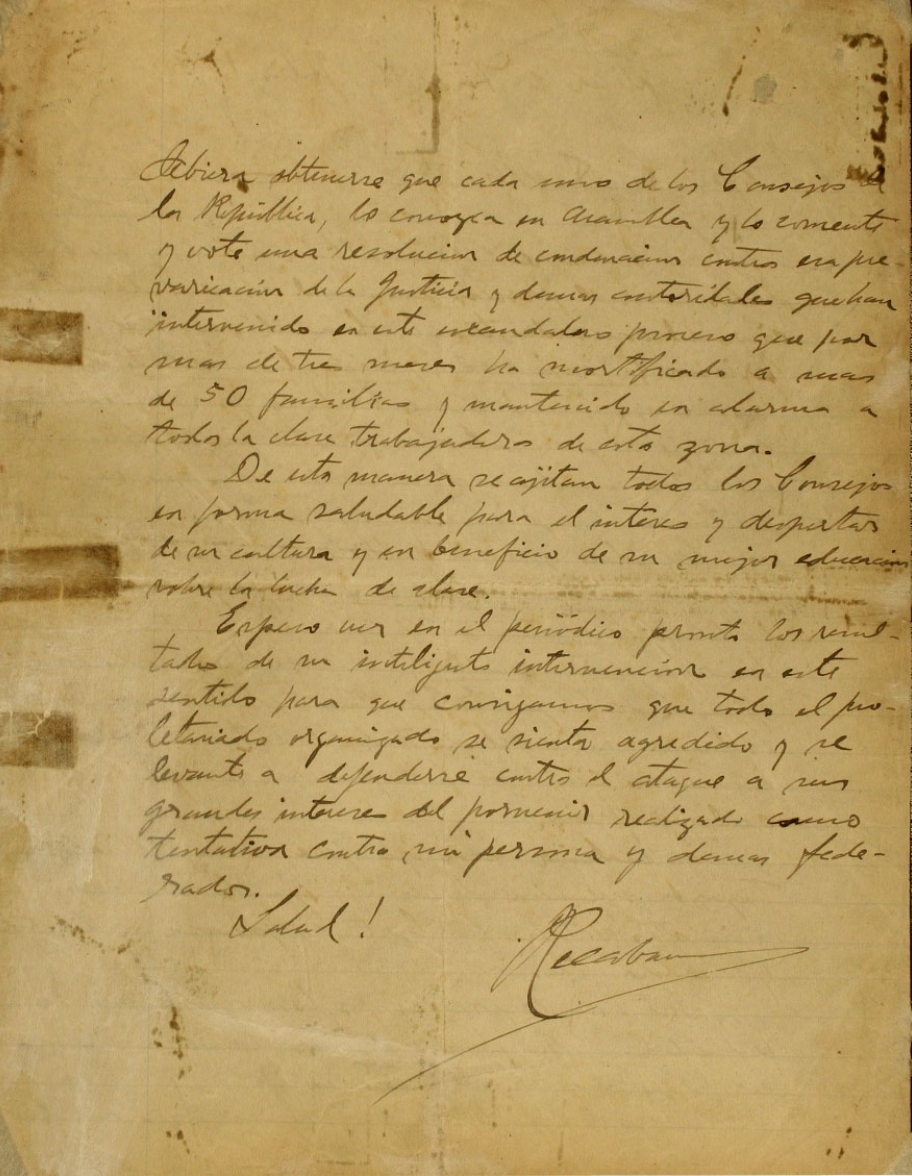 Debiera obtenerse que cada uno de los Consejos de
la República, lo conozca en Asamblea y lo comente
y vote una resolucion de condenacion contra esa pre-
varicacion de la Justicia y demas autoridades que han
intervenido en este escandaloso proceso que por
mas de tres meses ha mortificado a mas
de 50 familias y mantenido en alarma a
toda la clase trabajadora de esta zona.
De esta manera se ajitan todos los Consejos
en forma saludable para el interes y despertar
de su cultura y en beneficio de su mejor educacion
sobre la lucha de clase.
Espero ver en el periódico pronto los resul-
tados de su intelijente intervencion en este
sentido para que consigamos que todo el pro-
letariado organizado se sienta agredido y se
levante a defenderse contra el ataque a sus
grandes intereses del porvenir realizado como
tentativa contra mi persona y demas fede-
rados.
Salud!
Recabarren